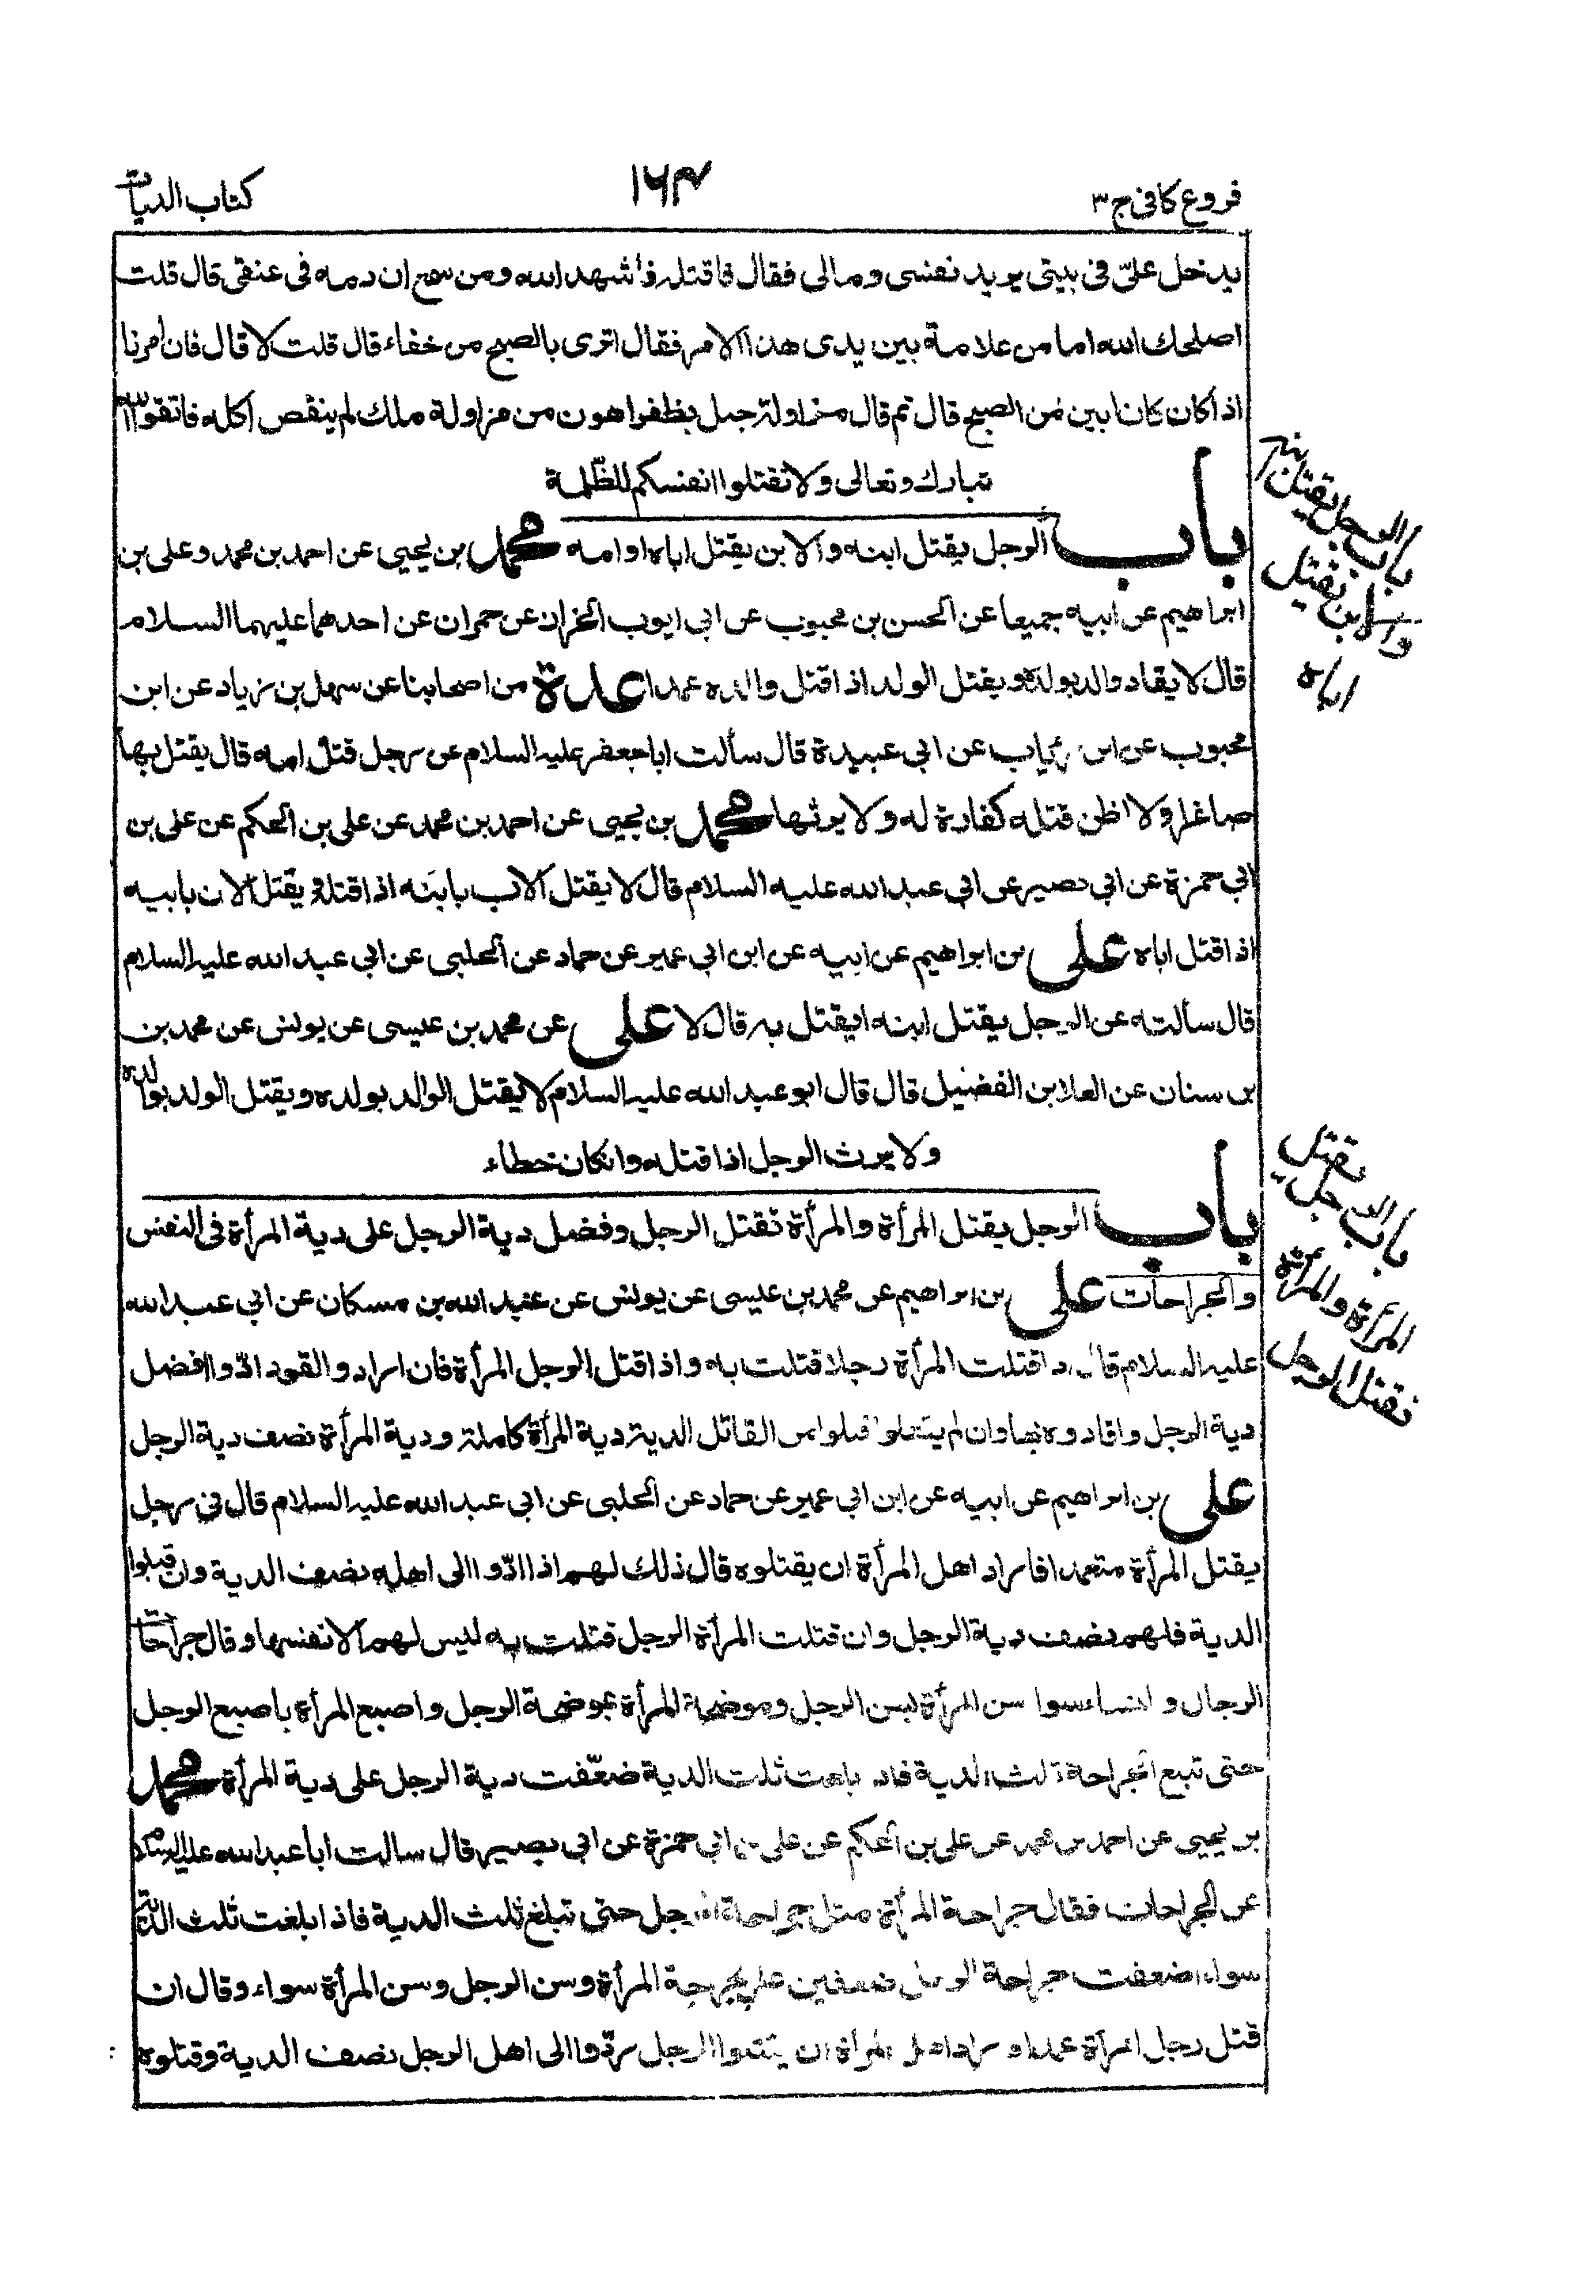 فروع كافى ج ٣
١٦٣
كتاب الديات
يدخل علىّ فى بيتى يريد نفسى ومالى فقال فاقتله فأشهد الله ومن سمع ان دمه فى عنقى قال قلت
اصلحك الله اما من علامة بين يدى هذا الامر فقال اترى بالصبح من خفاء قال قلت لا قال فان أمرنا
اذا كان كان ابين من الصبح قال ثم قال مزاولة جبل بظفر اهون من مزاولة ملك لم ينقص أكله فاتقوا الله
تبارك وتعالى ولا تقتلوا انفسكم للظّلمة
باب الرجل يقتل ابنه والابن يقتل اباه او امه محمد بن يحيى عن احمد بن محمد وعلى بن
ابراهيم عن ابيه جميعا عن الحسن بن محبوب عن ابى ايوب الخزاز عن حمران عن احدهما عليهما السلام
قال لا يقاد والد بولده ويقتل الولد اذا قتل والده عمدا عدة من اصحابنا عن سهل بن زياد عن ابن
محبوب عن ابن رئاب عن ابى عبيدة قال سألت ابا جعفر عليه السلام عن رجل قتل امه قال يقتل بها
صاغرا ولا اظن قتله كفارة له ولا يرثها محمد بن يحيى عن احمد بن محمد عن على بن الحكم عن على بن
ابى حمزة عن ابى بصير عن ابى عبد الله عليه السلام قال لا يقتل الاب بابنه اذا قتله و يقتل الابن بابيه
اذا قتل اباه على بن ابراهيم عن ابيه عن ابن ابى عمير عن حماد عن الحلبى عن ابى عبد الله عليه السلام
قال سألته عن الرجل يقتل ابنه ايقتل به قال لا على عن محمد بن عيسى عن يونس عن محمد بن
بن سنان عن العلا بن الفضيل قال قال ابو عبد الله عليه السلام لا يقتل الوالد بولده ويقتل الولد بوالده
ولا يرث الرجل اذا قتله وان كان خطاء
باب الرجل يقتل المرأة والمرأة تقتل الرجل وفضل دية الرجل على دية المرأة فى النفس
والجراحات على بن ابراهيم عن محمد بن عيسى عن يونس عن عبد الله بن مسكان عن ابى عبد الله
عليه السلام قال اذا قتلت المرأة رجلا قتلت به واذا قتل الرجل المرأة فان ارادوا القود ادّوا فضل
دية الرجل واقادوه بها وان لم يفعلوا قبلوا من القاتل الدية دية المرأة كاملة ودية المرأة نصف دية الرجل
على بن ابراهيم عن ابيه عن ابن ابى عمير عن حماد عن الحلبى عن ابى عبد الله عليه السلام قال فى رجل
يقتل المرأة متعمدا فاراد اهل المرأة ان يقتلوه قال ذلك لهم اذا ادّوا الى اهله نصف الدية وان قبلوا
الدية فلهم نصف دية الرجل وان قتلت المرأة الرجل قتلت به ليس لهم الا نفسها وقال جراحات
الرجال و النساء سوا سن المرأة بسن الرجل وموضحة المرأة بموضحة الرجل واصبع المرأة باصبع الرجل
حتى تبلغ الجراحة ثلث الدية فاذا بلغت ثلث الدية ضعّفت دية الرجل على دية المرأة محمد
بن يحيى عن احمد بن محمد عن على بن الحكم عن على بن ابى حمزة عن ابى بصير قال سالت ابا عبد الله عليه السلام
عن الجراحات فقال جراحة المرأة مثل جراحة الرجل حتى تبلغ ثلث الدية فاذا بلغت ثلث الدية
سواء اضعفت جراحة الرجل ضعفين على جراحة المرأة وسن الرجل وسن المرأة سواء وقال ان
قتل رجل امرأة عمدا و اراد اهل المرأة ان يقتلوا الرجل ردّوا الى اهل الرجل نصف الدية وقتلوه
باب الرجل يقتل ابنه
والابن يقتل
اباه
باب الرجل يقتل
المرأة والمرأة
تقتل الرجل